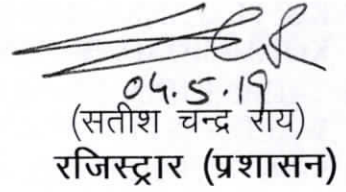 04.5.19
(सतीश चन्द्र राय)
रजिस्ट्रार (प्रशासन)